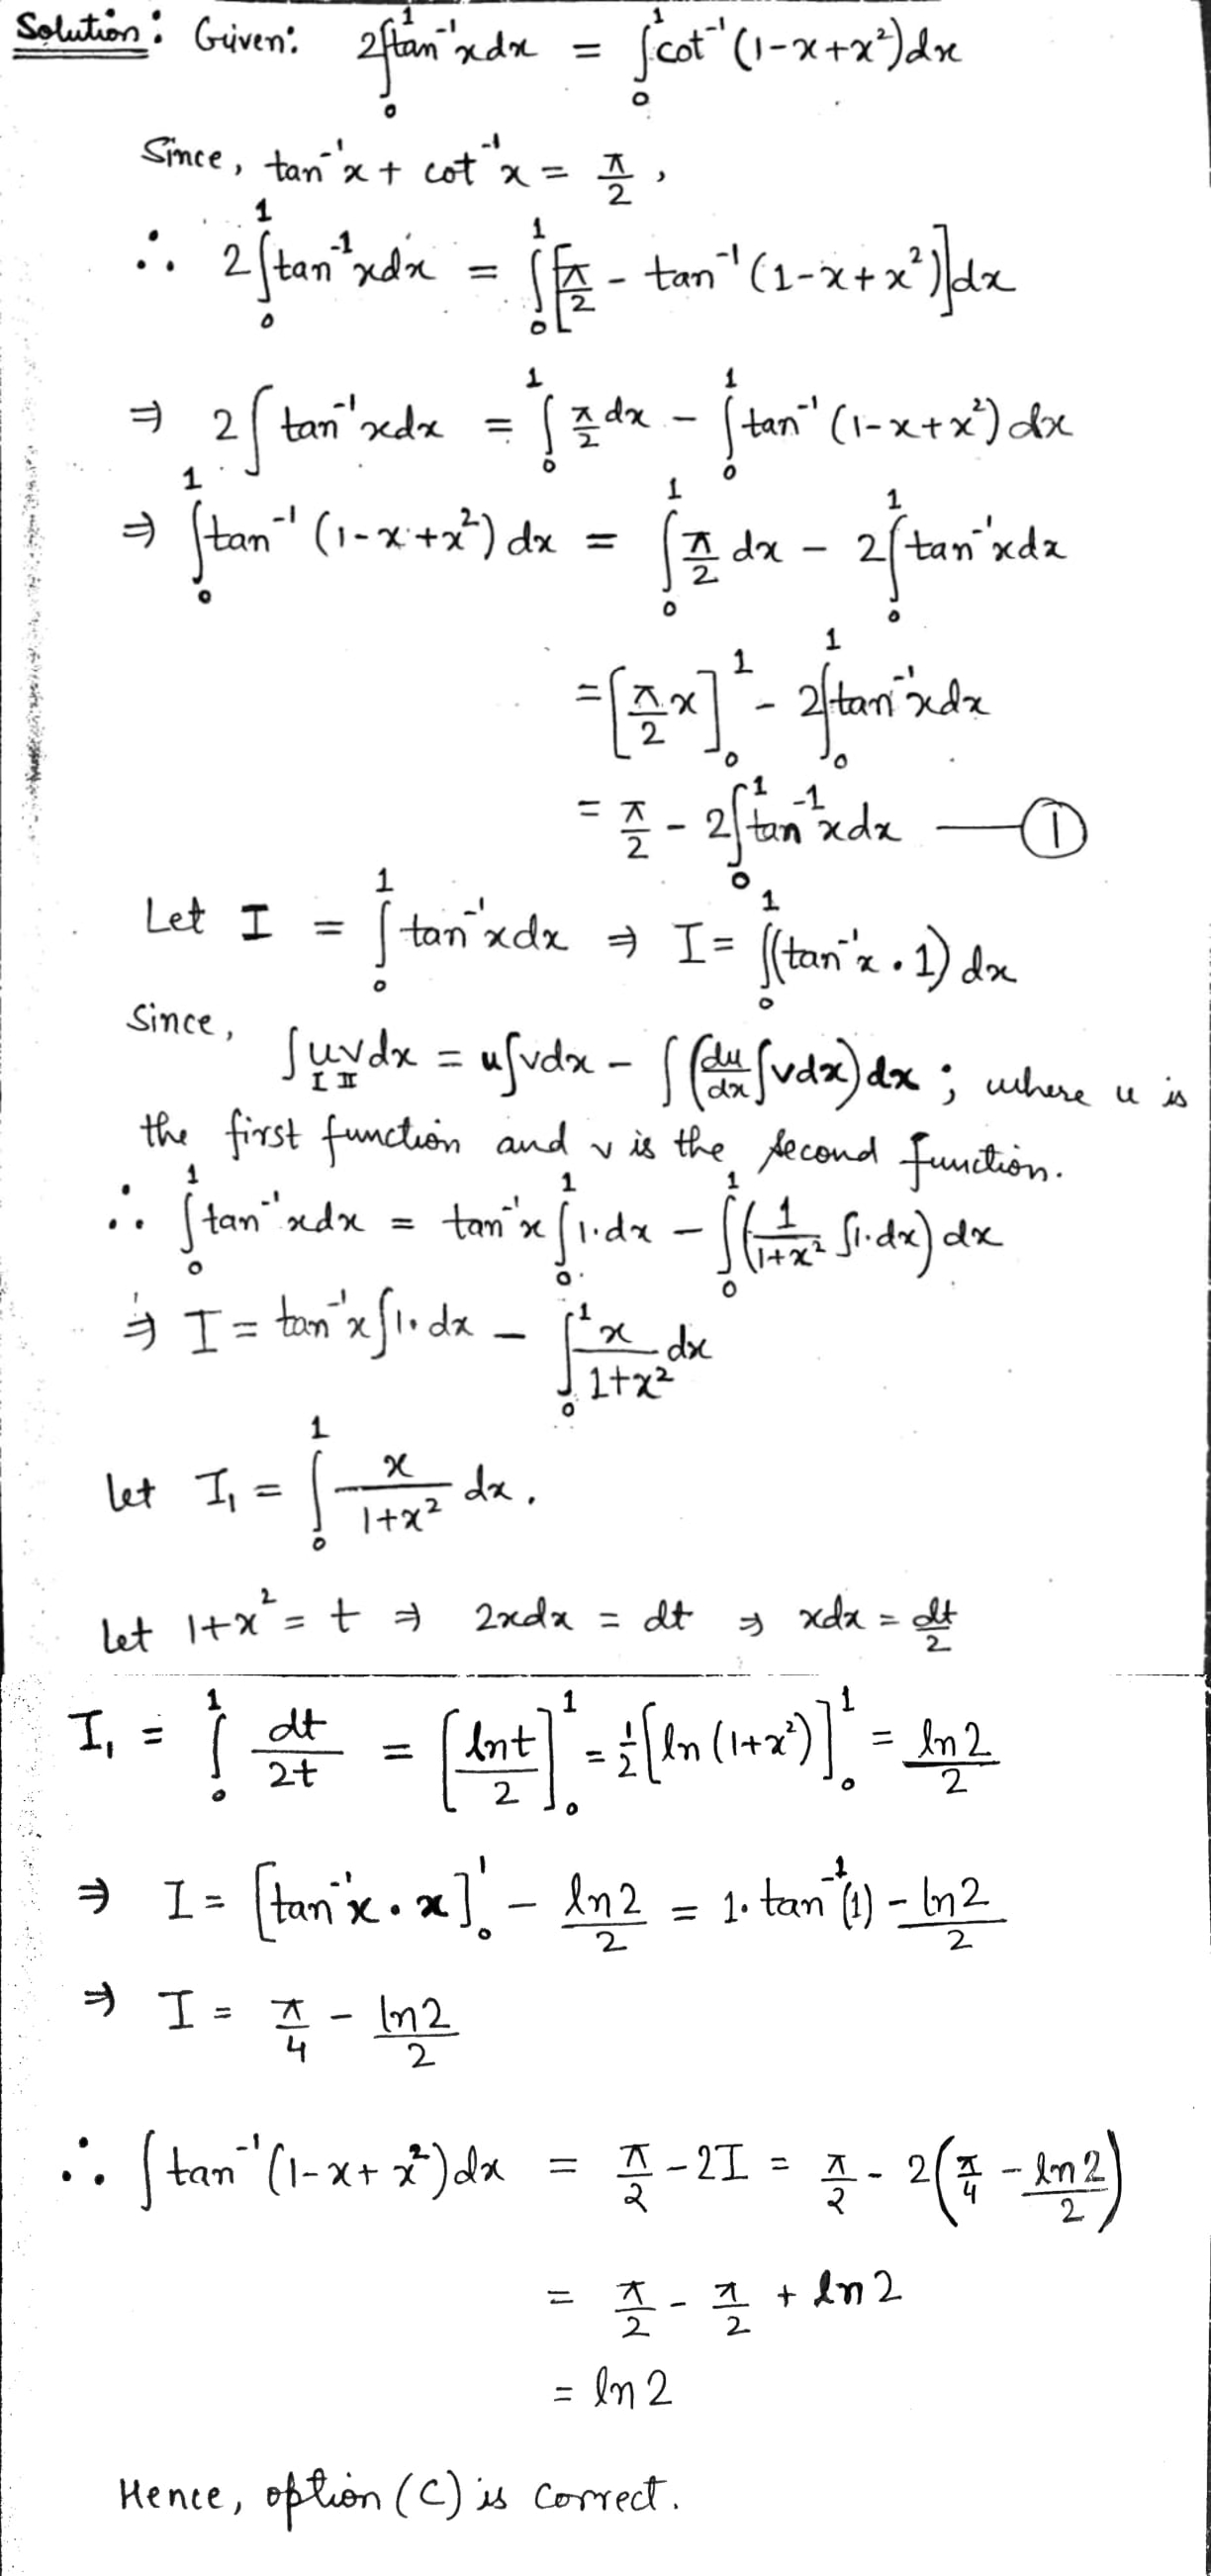 Solution: Given: 2∫₀¹ tan⁻¹x dx = ∫₀¹ cot⁻¹(1-x+x²)dx
Since, tan⁻¹x + cot⁻¹x = π/2,
∴ 2∫₀¹ tan⁻¹x dx = ∫₀¹ [π/2 - tan⁻¹(1-x+x²)]dx
⇒ 2∫ tan⁻¹x dx = ∫₀¹ π/2 dx - ∫₀¹ tan⁻¹(1-x+x²)dx
⇒ ∫₀¹ tan⁻¹(1-x+x²)dx = ∫₀¹ π/2 dx - 2∫₀¹ tan⁻¹x dx
= [π/2 x]₀¹ - 2∫₀¹ tan⁻¹x dx
= π/2 - 2∫₀¹ tan⁻¹x dx — ①
Let I = ∫₀¹ tan⁻¹x dx ⇒ I = ∫₀¹ (tan⁻¹x · 1) dx
Since, ∫uv dx = u∫vdx - ∫(du/dx ∫vdx)dx ; where u is
I II
the first function and v is the second function.
∴ ∫₀¹ tan⁻¹x dx = tan⁻¹x ∫₀¹ 1·dx - ∫₀¹ (1/(1+x²) ∫1·dx) dx
⇒ I = tan⁻¹x ∫1·dx - ∫₀¹ x/(1+x²) dx
let I₁ = ∫₀¹ x/(1+x²) dx.
Let 1+x² = t ⇒ 2xdx = dt ⇒ xdx = dt/2
I₁ = ∫₀¹ dt/2t = [lnt/2]₀¹ = 1/2[ln(1+x²)]₀¹ = ln2/2
⇒ I = [tan⁻¹x · x]₀¹ - ln2/2 = 1·tan⁻¹(1) - ln2/2
⇒ I = π/4 - ln2/2
∴ ∫tan⁻¹(1-x+x²)dx = π/2 - 2I = π/2 - 2(π/4 - ln2/2)
= π/2 - π/2 + ln2
= ln2
Hence, option (C) is correct.